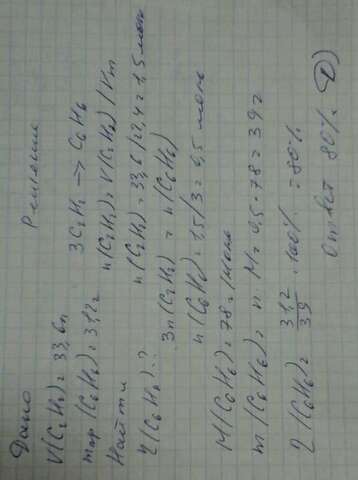 Дано
V(C2H2) = 33,6л
mпр (C6H6) = 31,2г
Найти
η(C6H6)-?
Решение
3C2H2 → C6H6
n(C2H2) = V(C2H2) / Vm
n(C2H2) = 33,6/22,4 = 1,5 моль
3n(C2H2) = n(C6H6)
n(C6H6) = 1,5/3 = 0,5 моль
M(C6H6) = 78 г/моль
m(C6H6) = n·M = 0,5·78 = 39г
η(C6H6) = 31,2/39 · 100% = 80%
Ответ 80%